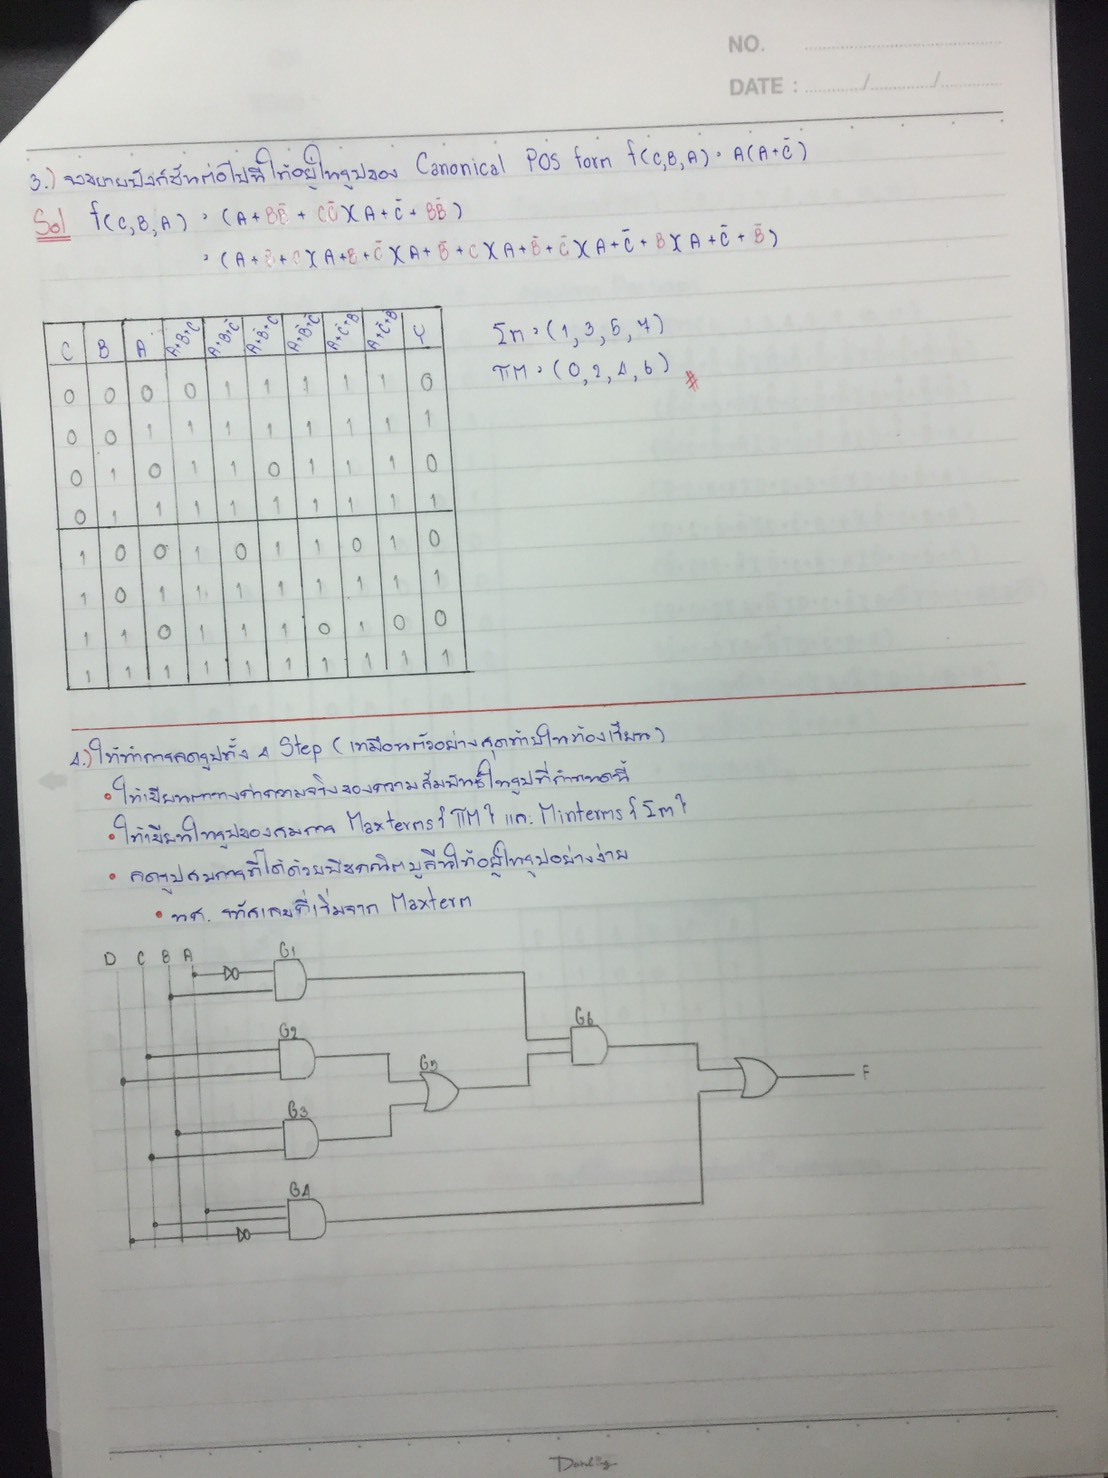 NO.
DATE : / /
3.) จงขยายฟังก์ชันต่อไปนี้ให้อยู่ในรูปของ Canonical POS form f(C,B,A) = A(A+C̄)
Sol f(C,B,A) = (A+BB̄ + CC̄)(A+C̄+BB̄)
= (A+B+C)(A+B+C̄)(A+B̄+C)(A+B̄+C̄)(A+C̄+B)(A+C̄+B̄)
C B A A+B+C A+B+C̄ A+B̄+C A+B̄+C̄ A+C̄+B A+C̄+B̄ Y
0 0 0 0 1 1 1 1 1 0
0 0 1 1 1 1 1 1 1 1
0 1 0 1 1 0 1 1 1 0
0 1 1 1 1 1 1 1 1 1
1 0 0 1 0 1 1 0 1 0
1 0 1 1 1 1 1 1 1 1
1 1 0 1 1 1 0 1 0 0
1 1 1 1 1 1 1 1 1 1
Σm = (1,3,5,7)
πM = (0,2,4,6) #
4.) ให้ทำการลดรูปทั้ง 4 Step (เหมือนตัวอย่างสุดท้ายในห้องเรียน)
• ให้เขียนตารางค่าความจริงของความสัมพันธ์ในรูปที่กำหนดนี้
• ให้เขียนในรูปของสมการ Maxterms {πM} และ Minterms {Σm}
• ลดรูปสมการที่ได้ด้วยพีชคณิตบูลีนให้อยู่ในรูปอย่างง่าย
• นศ. รหัสเลขคี่เริ่มจาก Maxterm
D C B A
G1
G2
G3
G4
G5
G6
F